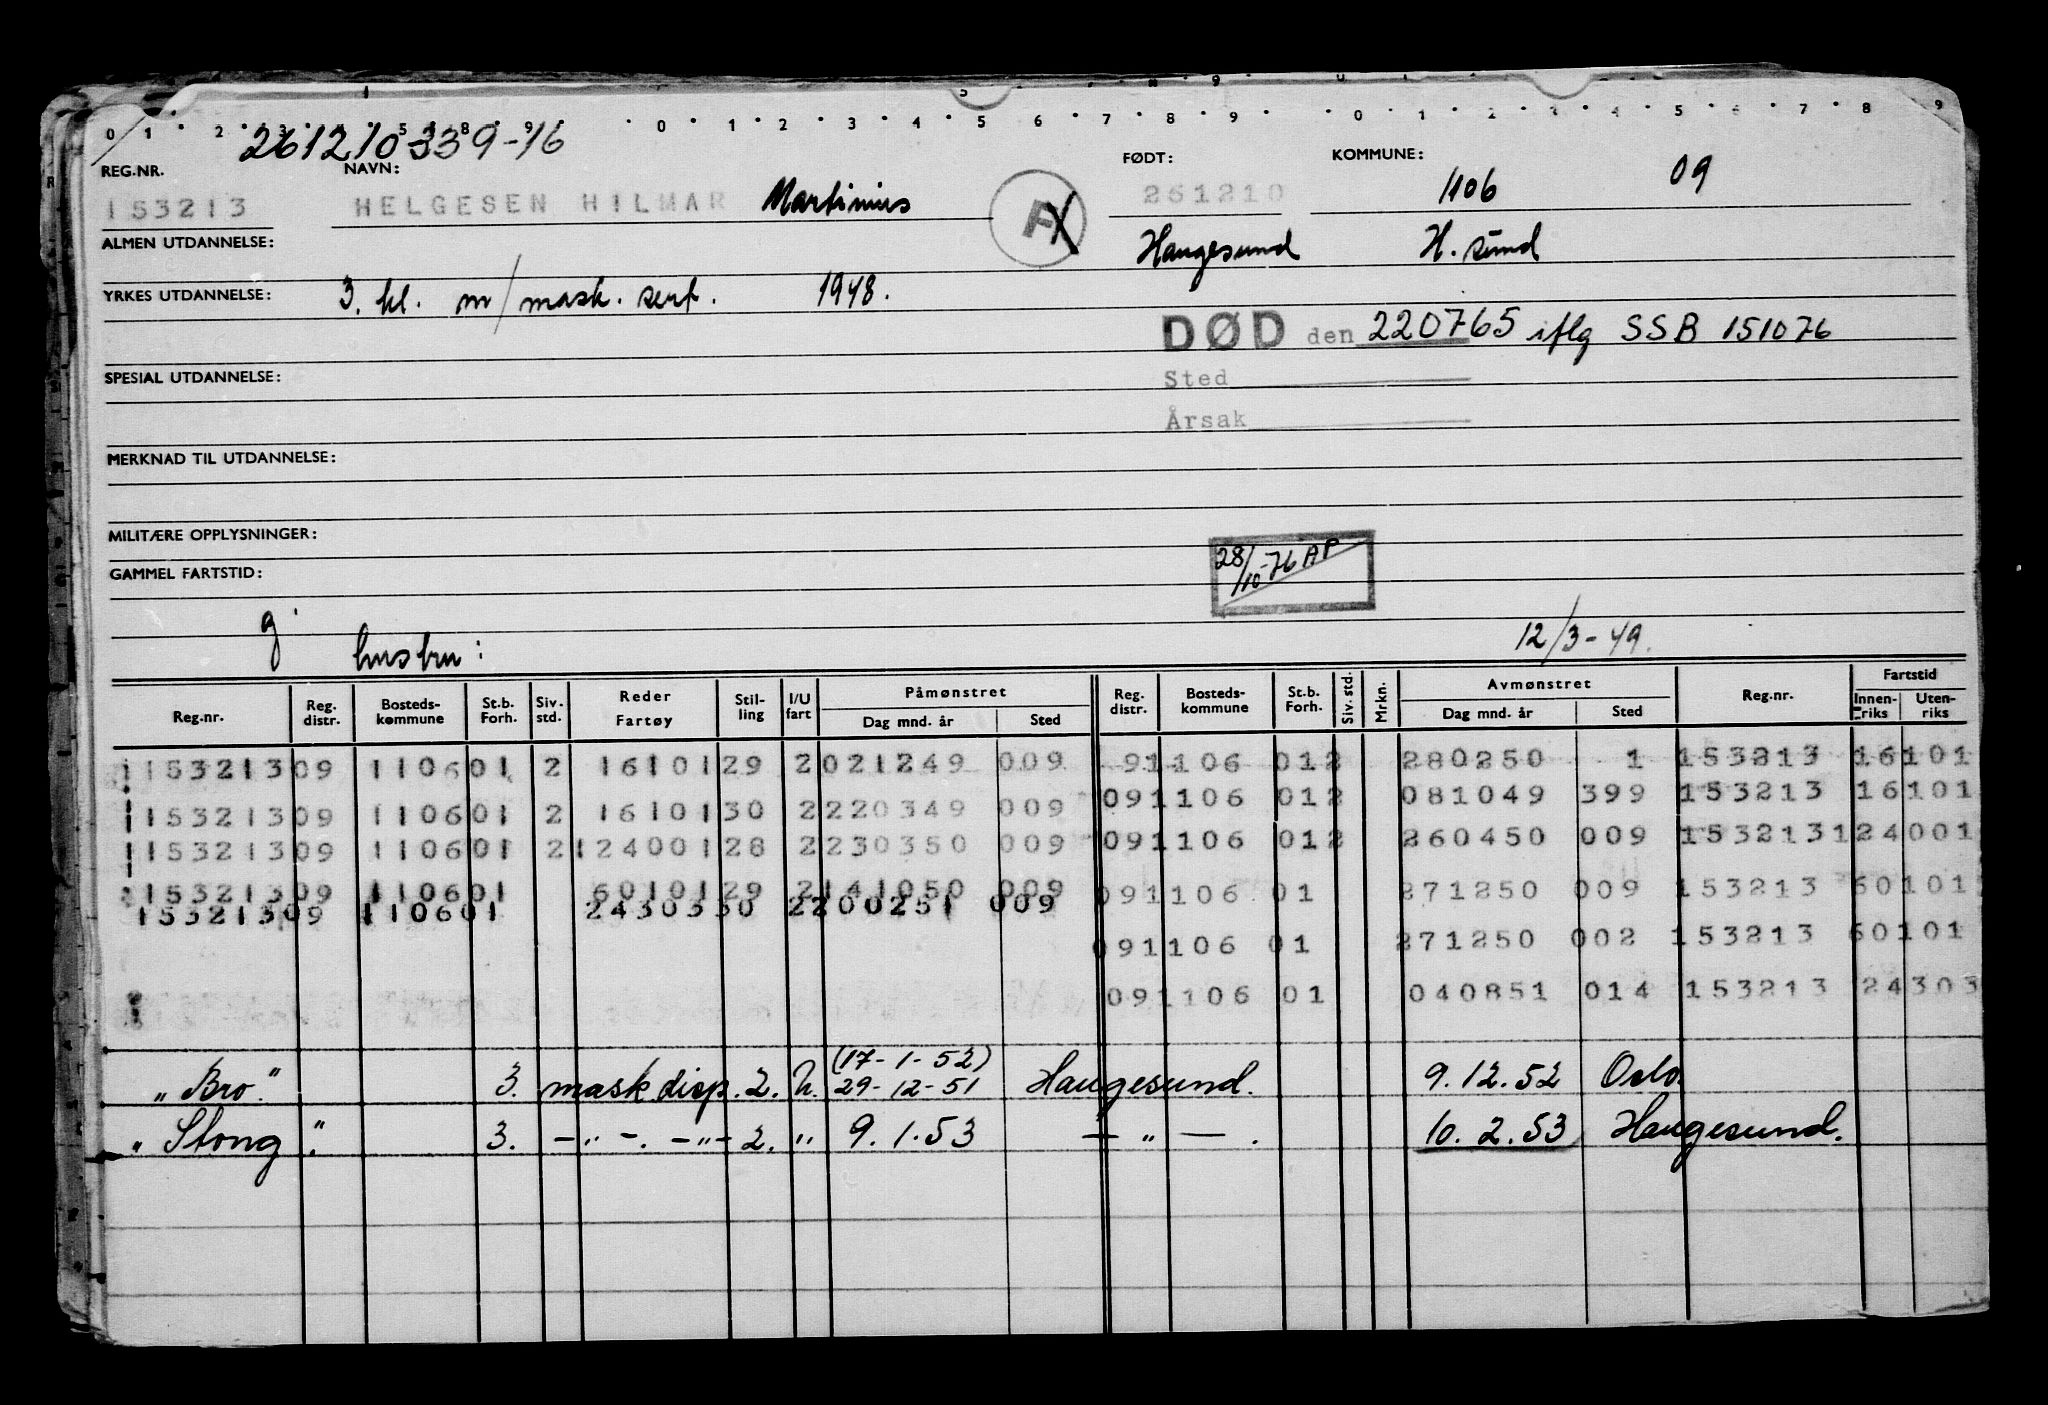 0 1 2 3 5 8 9 0 1 2 3 4 5 6 7 8 9 0 1 2 3 4 5 6 7 8 9
261210-339-16
REG.NR. NAVN: FØDT: KOMMUNE:
153213 HELGESEN HILMAR Martinius F 261210 1106 09
ALMEN UTDANNELSE: Haugesund H. sund
YRKES UTDANNELSE: 3. kl. m/mask. sert. 1948.
DØD den 220765 iflg SSB 151076
SPESIAL UTDANNELSE: Sted
Årsak
MERKNAD TIL UTDANNELSE:
MILITÆRE OPPLYSNINGER:
28/10-76 AP
GAMMEL FARTSTID:
g hustru: 12/3-49.
Reg.nr. Reg. distr. Bosteds-kommune St.b. Forh. Siv. std. Reder Fartøy Stil-ling I/U fart Påmønstret Dag mnd. år Sted Reg. distr. Bosteds-kommune St.b. Forh. Siv. std. Mrkn. Avmønstret Dag mnd. år Sted Reg.nr. Fartstid Innen-riks Uten-riks
153213 09 1106 01 2 16101 29 2 021249 009 91106 012 280250 1 153213 16101
091106 012 081049 399 153213 16101
153213 09 1106 01 2 16101 30 2 220349 009
153213 09 1106 01 2 124001 28 2 230350 009 091106 012 260450 009 153213 124001
153213 09 1106 01 60101 29 2 141050 009 091106 01 271250 009 153213 60101
153213 09 1106 01 24303 30 2 200251 009
091106 01 271250 002 153213 60101
091106 01 040851 014 153213 24303
(17-1-52)
"Bro" 3. mask disp. 2. U. 29-12-51 Haugesund. 9.12.52 Oslo.
"Stong" 3. -"-. -"- 2. " 9.1.53 -"-. 10.2.53 Haugesund.